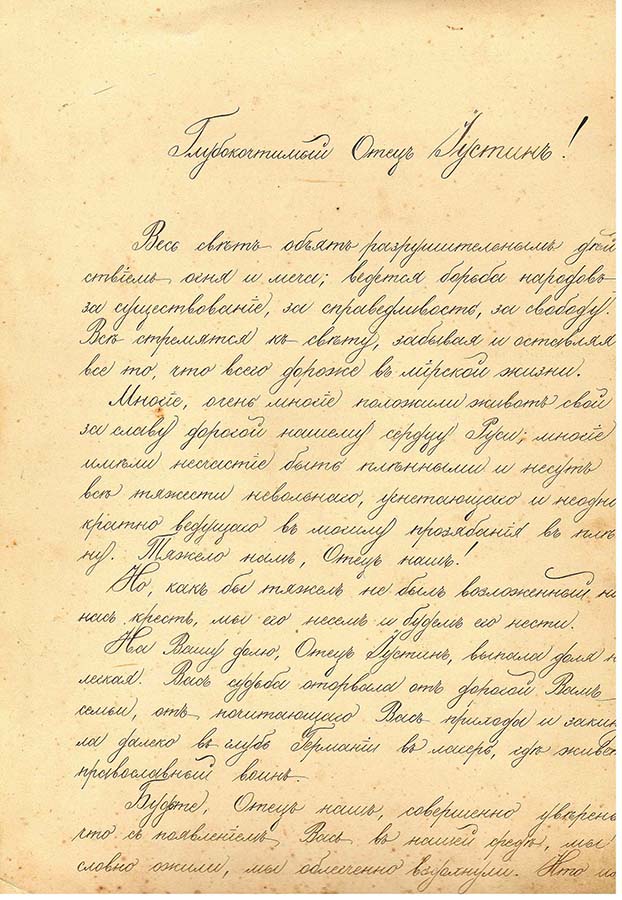 Глубокочтимый Отецъ Iустинъ!
Весь свѣтъ объятъ разрушительнымъ дѣй
ствіемъ огня и меча; ведется борьба народовъ
за существованіе, за справедливость, за свободу.
Всѣ стремятся къ свѣту, забывая и оставляя
все то, что всего дороже въ мірской жизни.
Многіе, очень многіе положили животъ свой
за славу дорогой нашему сердцу Руси; многіе
имѣли несчастіе быть плѣнными и несутъ
всѣ тяжести невольнаго, угнетающаго и неодно
кратно ведущаго въ могилу прозябанія въ плѣ
ну. Тяжело намъ, Отецъ нашъ!
Но, какъ бы тяжелъ не былъ возложенный на
насъ крестъ, мы его несемъ и будемъ его нести.
На Вашу долю, Отецъ Iустинъ, выпала доля не
легкая. Васъ судьба оторвала отъ дорогой Вамъ
семьи, отъ почитающаго Васъ прихода и закину
ла далеко въ глубь Германіи въ лагерь, гдѣ живетъ
православный воинъ.
Будьте, Отецъ нашъ, совершенно увѣрены
что съ появленіемъ Васъ въ нашей средѣ, мы
словно ожили, мы облегченно вздохнули. Кто из